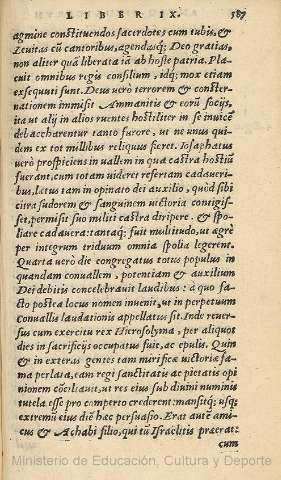 LIBER IX. 587
agmine constituendos sacerdotes cum tubis, &
Leuitas cū cantoribus, agendasq́; Deo gratias,
non aliter quàm liberata iā ab hoste patria. Pla
cuit omnibus regis consilium, idq́; mox etiam
exsequuti sunt. Deus uerò terrorem & conster-
nationem immisit Ammanitis & eorū socijs,
ita ut alij in alios ruentes hostiliter in se inuicē
debaccharentur tanto furore, ut ne unus qui-
dem ex tot millibus reliquus fieret. Iosaphatus
uerò prospiciens in uallem in qua castra hostiū
fuerant, cum totam uideret refertam cadaueri-
bus, lætus tam inopinato dei auxilio, quòd sibi
citra sudorem & sanguinem uictoria contigis-
set, permisit suo militi castra diripere. & spo-
liare cadauera: tantaq́; fuit multitudo, ut ægrè
per integrum triduum omnia spolia legerent.
Quarta uerò die congregatus totus populus in
quandam conuallem, potentiam & auxilium
Dei debitis concelebrauit laudibus: a quo fa-
cto postea locus nomen inuenit, ut in perpetuum
Conuallis laudationis appellatus sit. Inde reuer-
sus cum exercitu rex Hierosolyma, per aliquot
dies in sacrificijs occupatus fuit, ac epulis. Quin
& in exteras gentes tam mirificæ uictoriæ fa
ma perlata, eam regi sanctitatis ac pietatis opi
nionem cōciliauit, ut res eius sub diuini numinis
tutela esse pro comperto crederent: mansitq́; usq;
extremū eius diē hæc persuasio. Erat autē ami-
cus & Achabi filio, qui tū Israelitis præerat:
cum
Ministerio de Educación, Cultura y Deporte